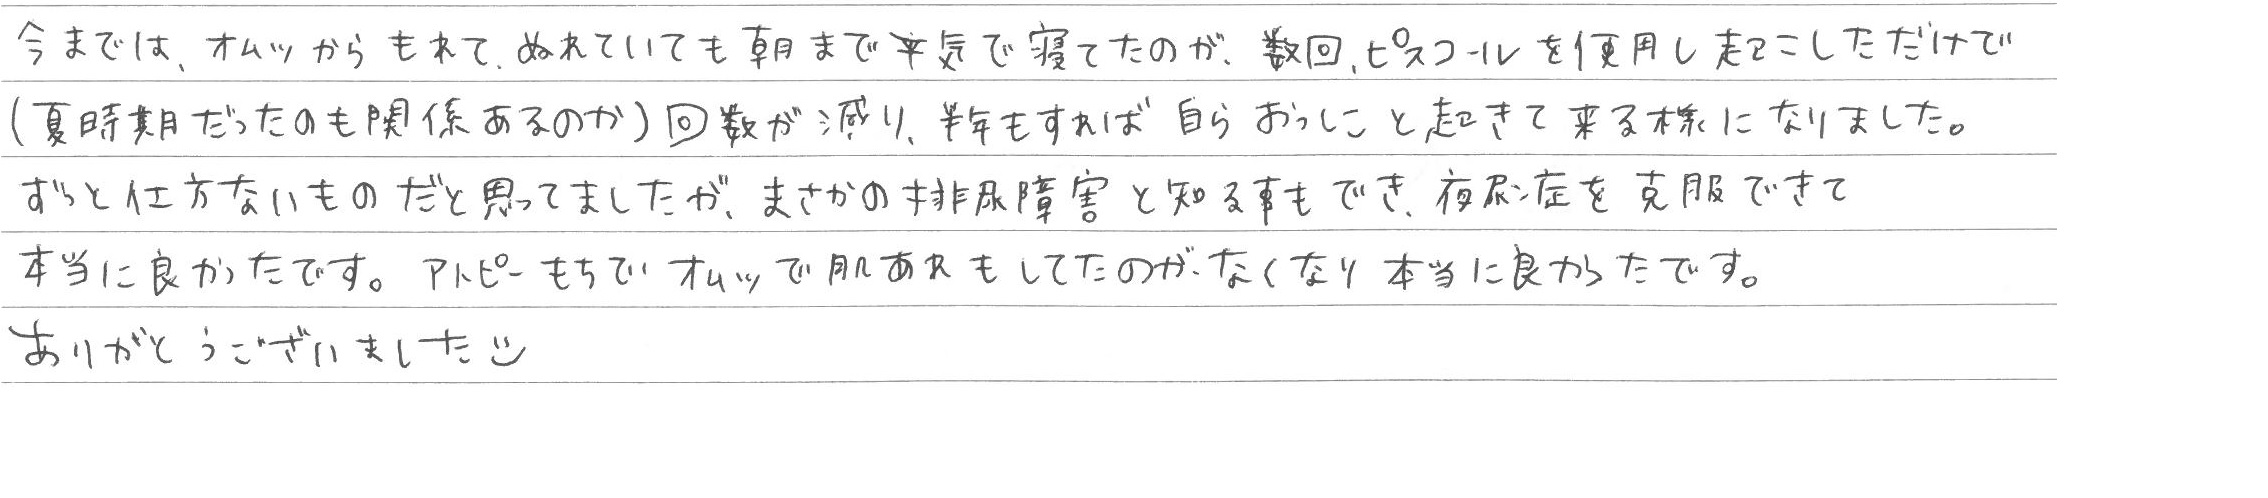 今までは、オムツからもれて、ぬれていても朝まで平気で寝てたのが、数回、ピスコールを使用し起こしただけで
(夏時期だったのも関係あるのか)回数が減り、半年もすれば自らおっしこと起きて来る様になりました。
ずっと仕方ないものだと思ってましたが、まさかの排尿障害と知る事もでき、夜尿症を克服できて
本当に良かったです。アトピーもちでオムツで肌あれもしてたのが、なくなり本当に良かったです。
ありがとうございました